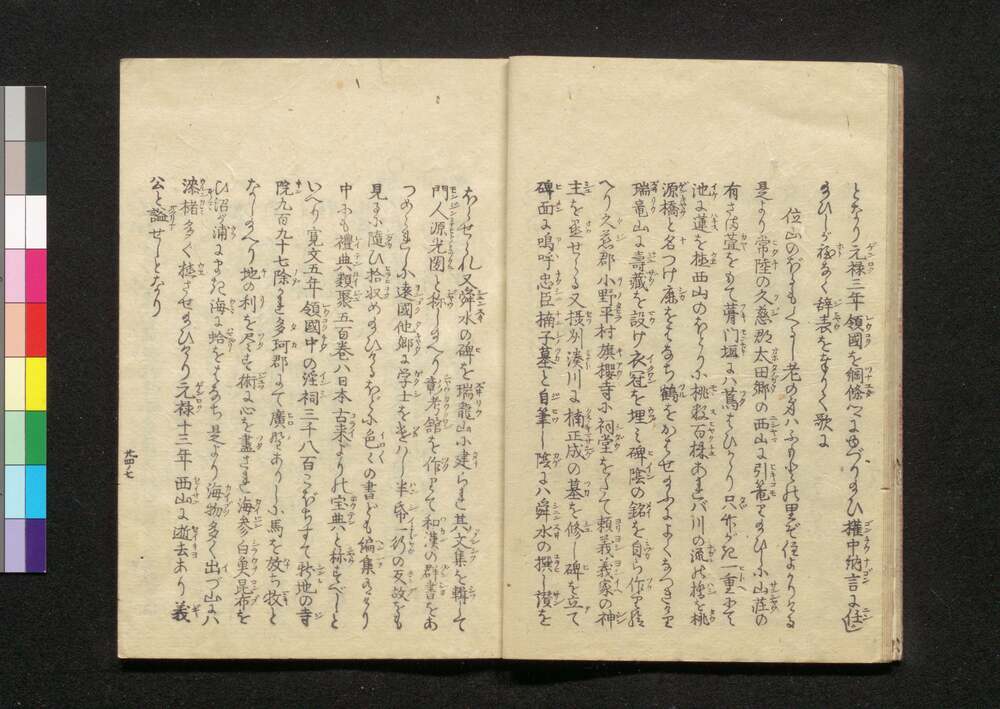 となり元禄三年領國を綱條へに由づり玉ひ權中納言に任し
玉ひしが程なく辞表を奉りて歌に
位山のぼるもくるし老の身ハふもとの里ぞ住よかりける
是より常陸の久慈郡太田郷の西山に引篭り玉ひし小山莊の
有さ満萱をもて葺門垣にハ蔦をひかり只竹が死一重にて
池に蓮を植西山のほとり小桃数百株あれバ川の流の橋を桃
源橋と名つけ鹿をはなち鶴をかはせ玉ふによくなつきけり
瑞竜山に壽藏を設け衣冠を埋ミ碑陰の銘を自ら作り給
へり久慈郡小野平村旗櫻寺小祠堂をたて頼義義家の神
主を置せらる又摂州湊川に楠正成の墓を修し碑を立て
碑面に嗚呼忠臣楠子墓と自筆し陰にハ舜水の撰し讃を
ほらせられ又舜水の碑を瑞龍山小建られ其文集を輯して
門人源光圀と称し玉へり彰考舘を作りて和漢の群書をあ
つめられし小遠國他郷に学士を遣ハし半帋一行の反故をも
見るに隨ひ拾収め玉ひける程に色〻の書ども編集ありけり
中にも禮典類聚五百巻ハ日本古来よりの宝典と称すべしと
いへり寛文五年領國中の淫祠三千八百こぼちすて新地の寺
院九百九十七除れ多珂郡にて廣野ありし小馬を放ち牧と
なし玉へり地の利を尽す術に心を盡され海参白魚昆布を
ひ沼が浦にまき海に蛤をはなち是より海物多く出づ山にハ
漆楮多く植させ玉ひけり元禄十三年西山に逝去あり義
公と謚せしとなり
廿七